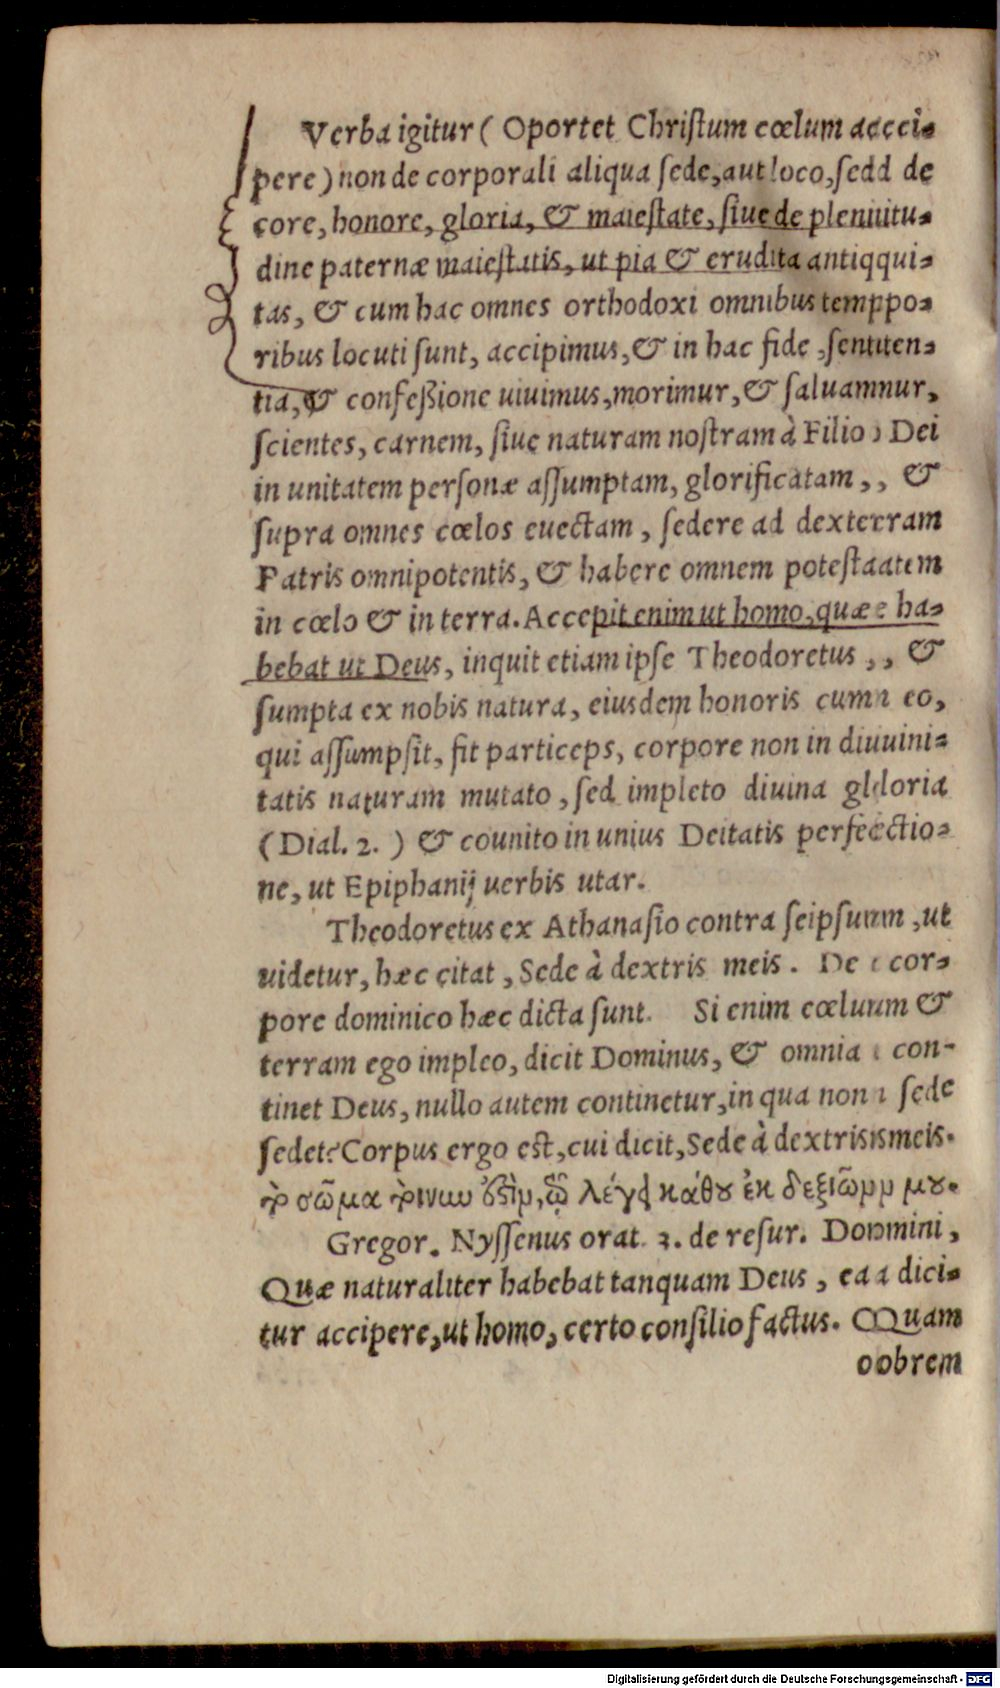 Verba igitur ( Oportet Christum cœlum accci-
pere ) non de corporali aliqua sede, aut loco, sedd de
core, honore, gloria, & maiestate, siue de pleniiitu-
dine paternæ maiestatis, ut pia & erudita antiqqui-
tas, & cum hac omnes orthodoxi omnibus temppo-
ribus locuti sunt, accipimus, & in hac fide , sentiten-
tia, & confeßione uiuimus, morimur, & saluamnur,
scientes, carnem, siue naturam nostram à Filio Dei
in unitatem personæ assumptam, glorificatam , , &
supra omnes cœlos euectam , sedere ad dexterram
Patris omnipotentis, & habere omnem potestaatem
in cœlo & in terra. Accepit enim ut homo, quæ e ha-
bebat ut Deus, inquit etiam ipse Theodoretus , , &
sumpta ex nobis natura, eiusdem honoris cum eo,
qui assumpsit, fit particeps, corpore non in diuuini-
tatis naturam mutato , sed impleto diuina glloria
( Dial. 2. ) & counito in unius Deitatis perfeectio-
ne, ut Epiphanij uerbis utar.
Theodoretus ex Athanasio contra seipsum , ut
uidetur, hæc citat , Sede à dextris meis . De cor-
pore dominico hæc dicta sunt. Si enim cœluum &
terram ego impleo, dicit Dominus, & omnia con-
tinet Deus, nullo autem continetur, in qua non sede
sedet? Corpus ergo est, cui dicit, Sede à dextrisismeis.
σῶμα λέγει κάθου ἐκ δεξιῶμμ μου.
Gregor. Nyssenus orat. 3. de resur. Dommini ,
Quæ naturaliter habebat tanquam Deus , ea a dici-
tur accipere, ut homo, certo consilio factus. QQuam
oobrem
Digitalisierung gefördert durch die Deutsche Forschungsgemeinschaft - DFG